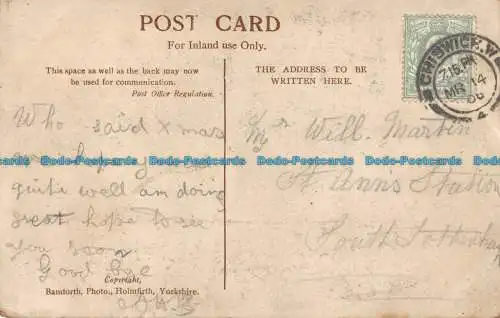 POST CARD
For Inland use Only.
This space as well as the back may now
be used for communication.
Post Office Regulation.
THE ADDRESS TO BE
WRITTEN HERE.
CHISWICK. W
7.15 PM
MR 14
06
Who said Xmas
quite well am doing
great hope to see
you soon
Good bye
Mr Will. Martin
St. Anns Station
South Tottenham
Copyright,
Bamforth, Photo., Holmfirth, Yorkshire.
Postcards-Postcards Postcards-Postcards Postcards-Postcards